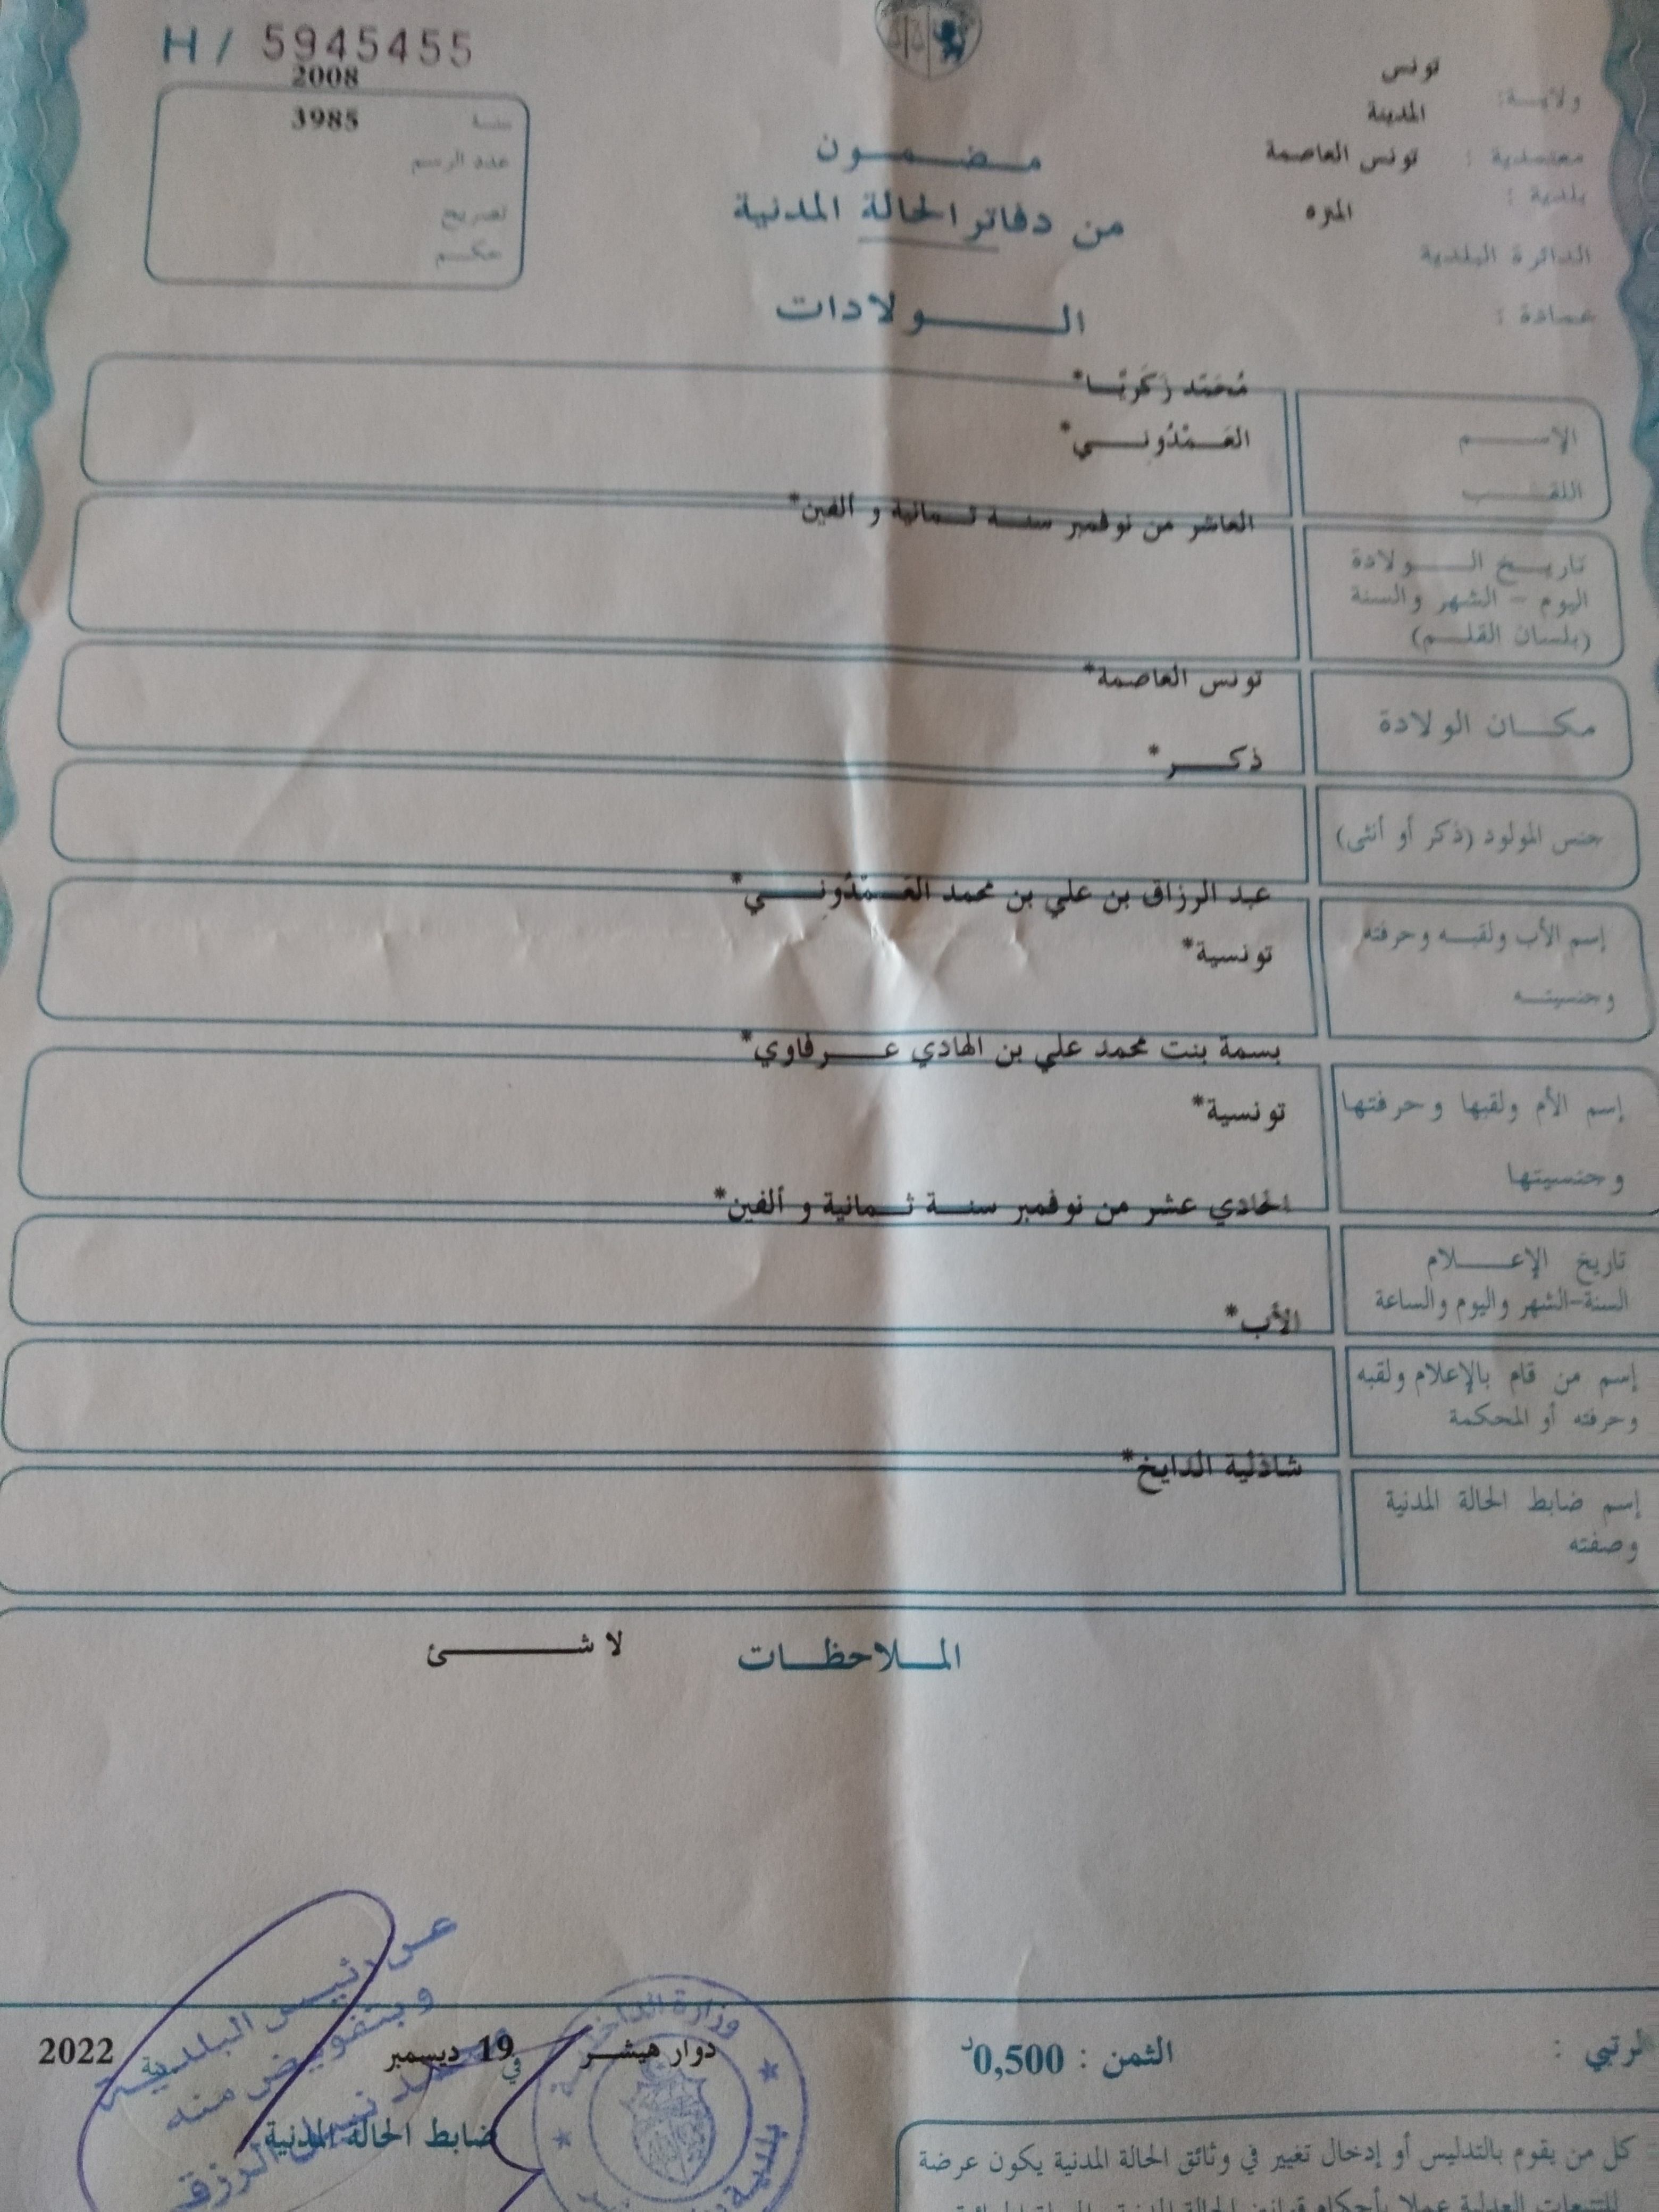 H / 5945455
2008
3985
سنة
عدد الرسم
تصريح
حكم
تونس
ولاية:
المدينة
معتمدية : تونس العاصمة
بلدية :
المنزه
الدائرة البلدية
عمادة :
مضمون
من دفاتر الحالة المدنية
الولادات
مُحَمّد زَكَريّا*
الاسم
العَمْدُوني*
اللقب
العاشر من نوفمبر سنة ثمانية و ألفين*
تاريخ الولادة
اليوم - الشهر والسنة
(بلسان القلم)
تونس العاصمة*
مكان الولادة
ذكر*
جنس المولود (ذكر أو أنثى)
عبد الرزاق بن علي بن محمد العَمْدُوني*
إسم الأب ولقبه وحرفته
تونسية*
وجنسيته
بسمة بنت محمد علي بن الهادي عرفاوي*
إسم الأم ولقبها وحرفتها
تونسية*
وجنسيتها
الحادي عشر من نوفمبر سنة ثمانية و ألفين*
تاريخ الإعلام
السنة-الشهر واليوم والساعة
الأب*
إسم من قام بالإعلام ولقبه
وحرفته أو المحكمة
شاذلية الدايخ*
إسم ضابط الحالة المدنية
وصفته
الملاحظات لا شئ
عن رئيس البلدية
وبتفويض منه
وزارة الداخلية
دوار هيشر في 19 ديسمبر 2022
الثمن : 0,500د
ضابط الحالة المدنية
كل من يقوم بالتدليس أو إدخال تغيير في وثائق الحالة المدنية يكون عرضة